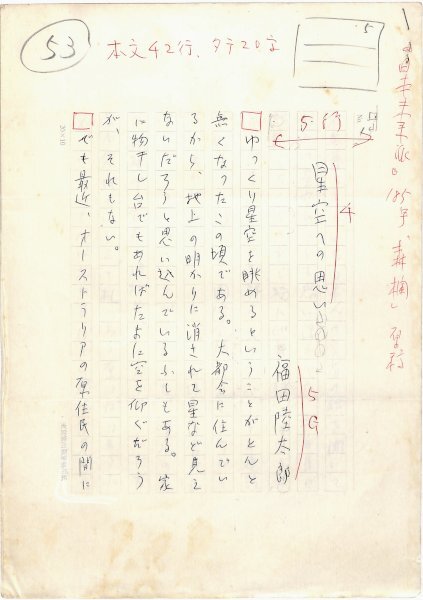 53
本文42行、タテ20字
5
5行
4
星空への思い
5G
福田陸太郎
ゆっくり星空を眺めるということがとんと
無くなったこの頃である。大都会に住んでい
るから、地上の明かりに消されて星など見え
ないだろうと思い込んでいるふしもある。家
に物干し台でもあればたまに空を仰ぐだろう
が、それもない。
でも最近、オーストラリアの原住民の間に
20×10